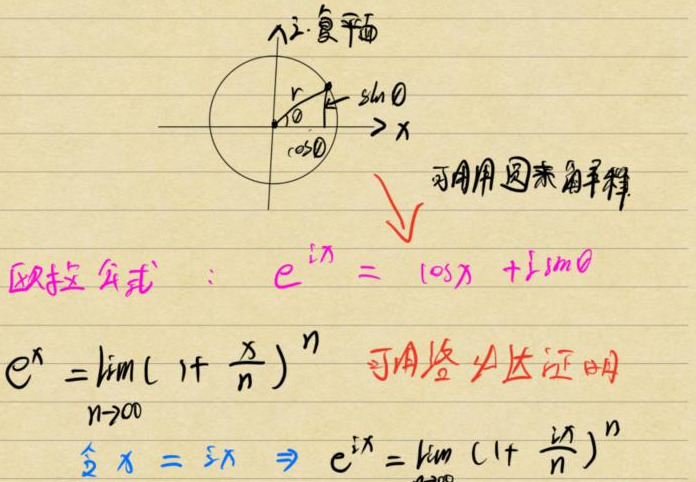 i.复平面
r
sinθ
θ
x
cosθ
可用用圆来解释
欧拉公式 : e^{ix} = cosx + i sinθ
e^x = lim_{n→∞} ( 1 + x/n )^n 可用 证明
令 x = ix ⇒ e^{ix} = lim_{n→∞} (1 + ix/n)^n